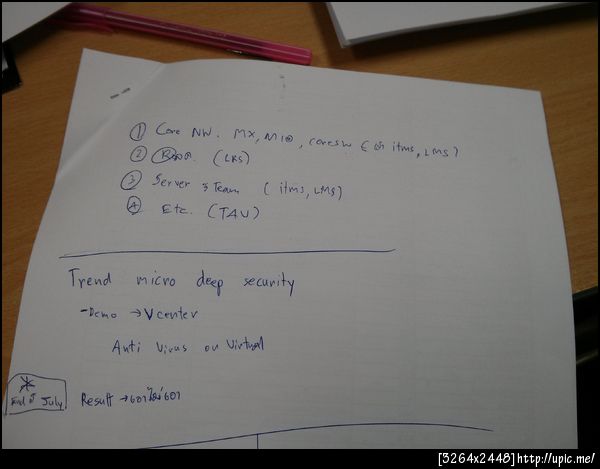 ① Core NW. MX, M10, coresw ( itms, LMS)
② (LKS)
③ Server 3 Team ( itms, LMS)
④ Etc. (TAV)
Trend micro deep security
- Demo → Vcenter
Anti Virus on Virtual
* End of July
Result → เอา/ไม่เอา
[3264x2448]http://upic.me/